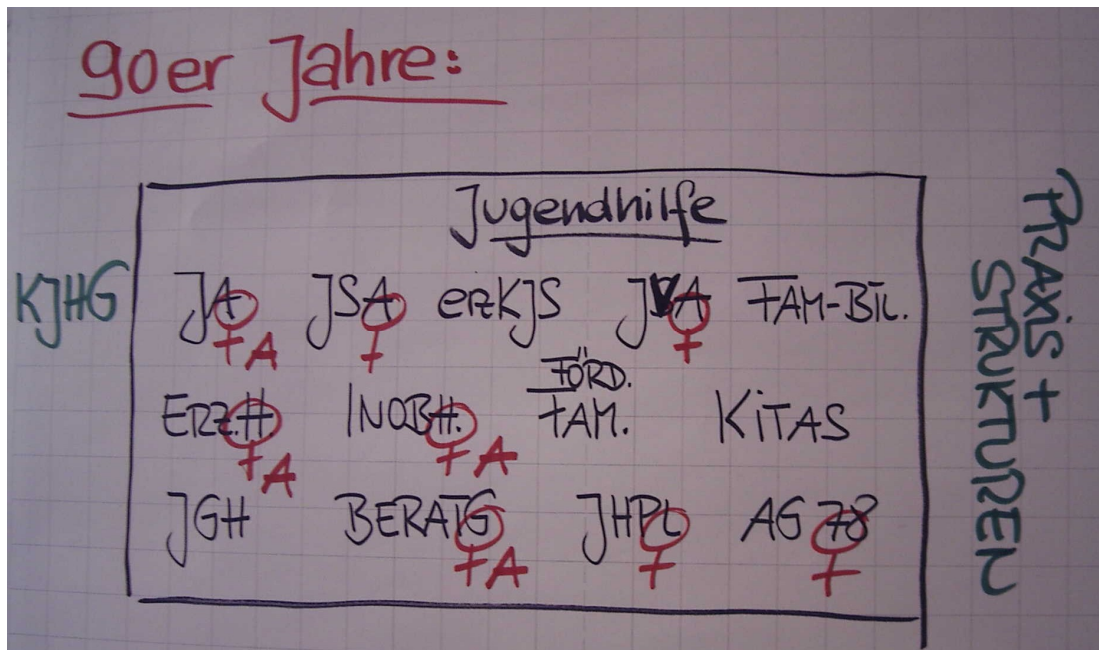 90er Jahre:
Jugendhilfe
KJHG
JA JSA erzKJS JVA FAM-BIL.
♀A ♀ ♀
ERZ.H INOBH. FÖRD. FAM. KITAS
♀A ♀A
JGH BERATG JHPL AG 78
♀A ♀ ♀
PRAXIS +
STRUKTUREN